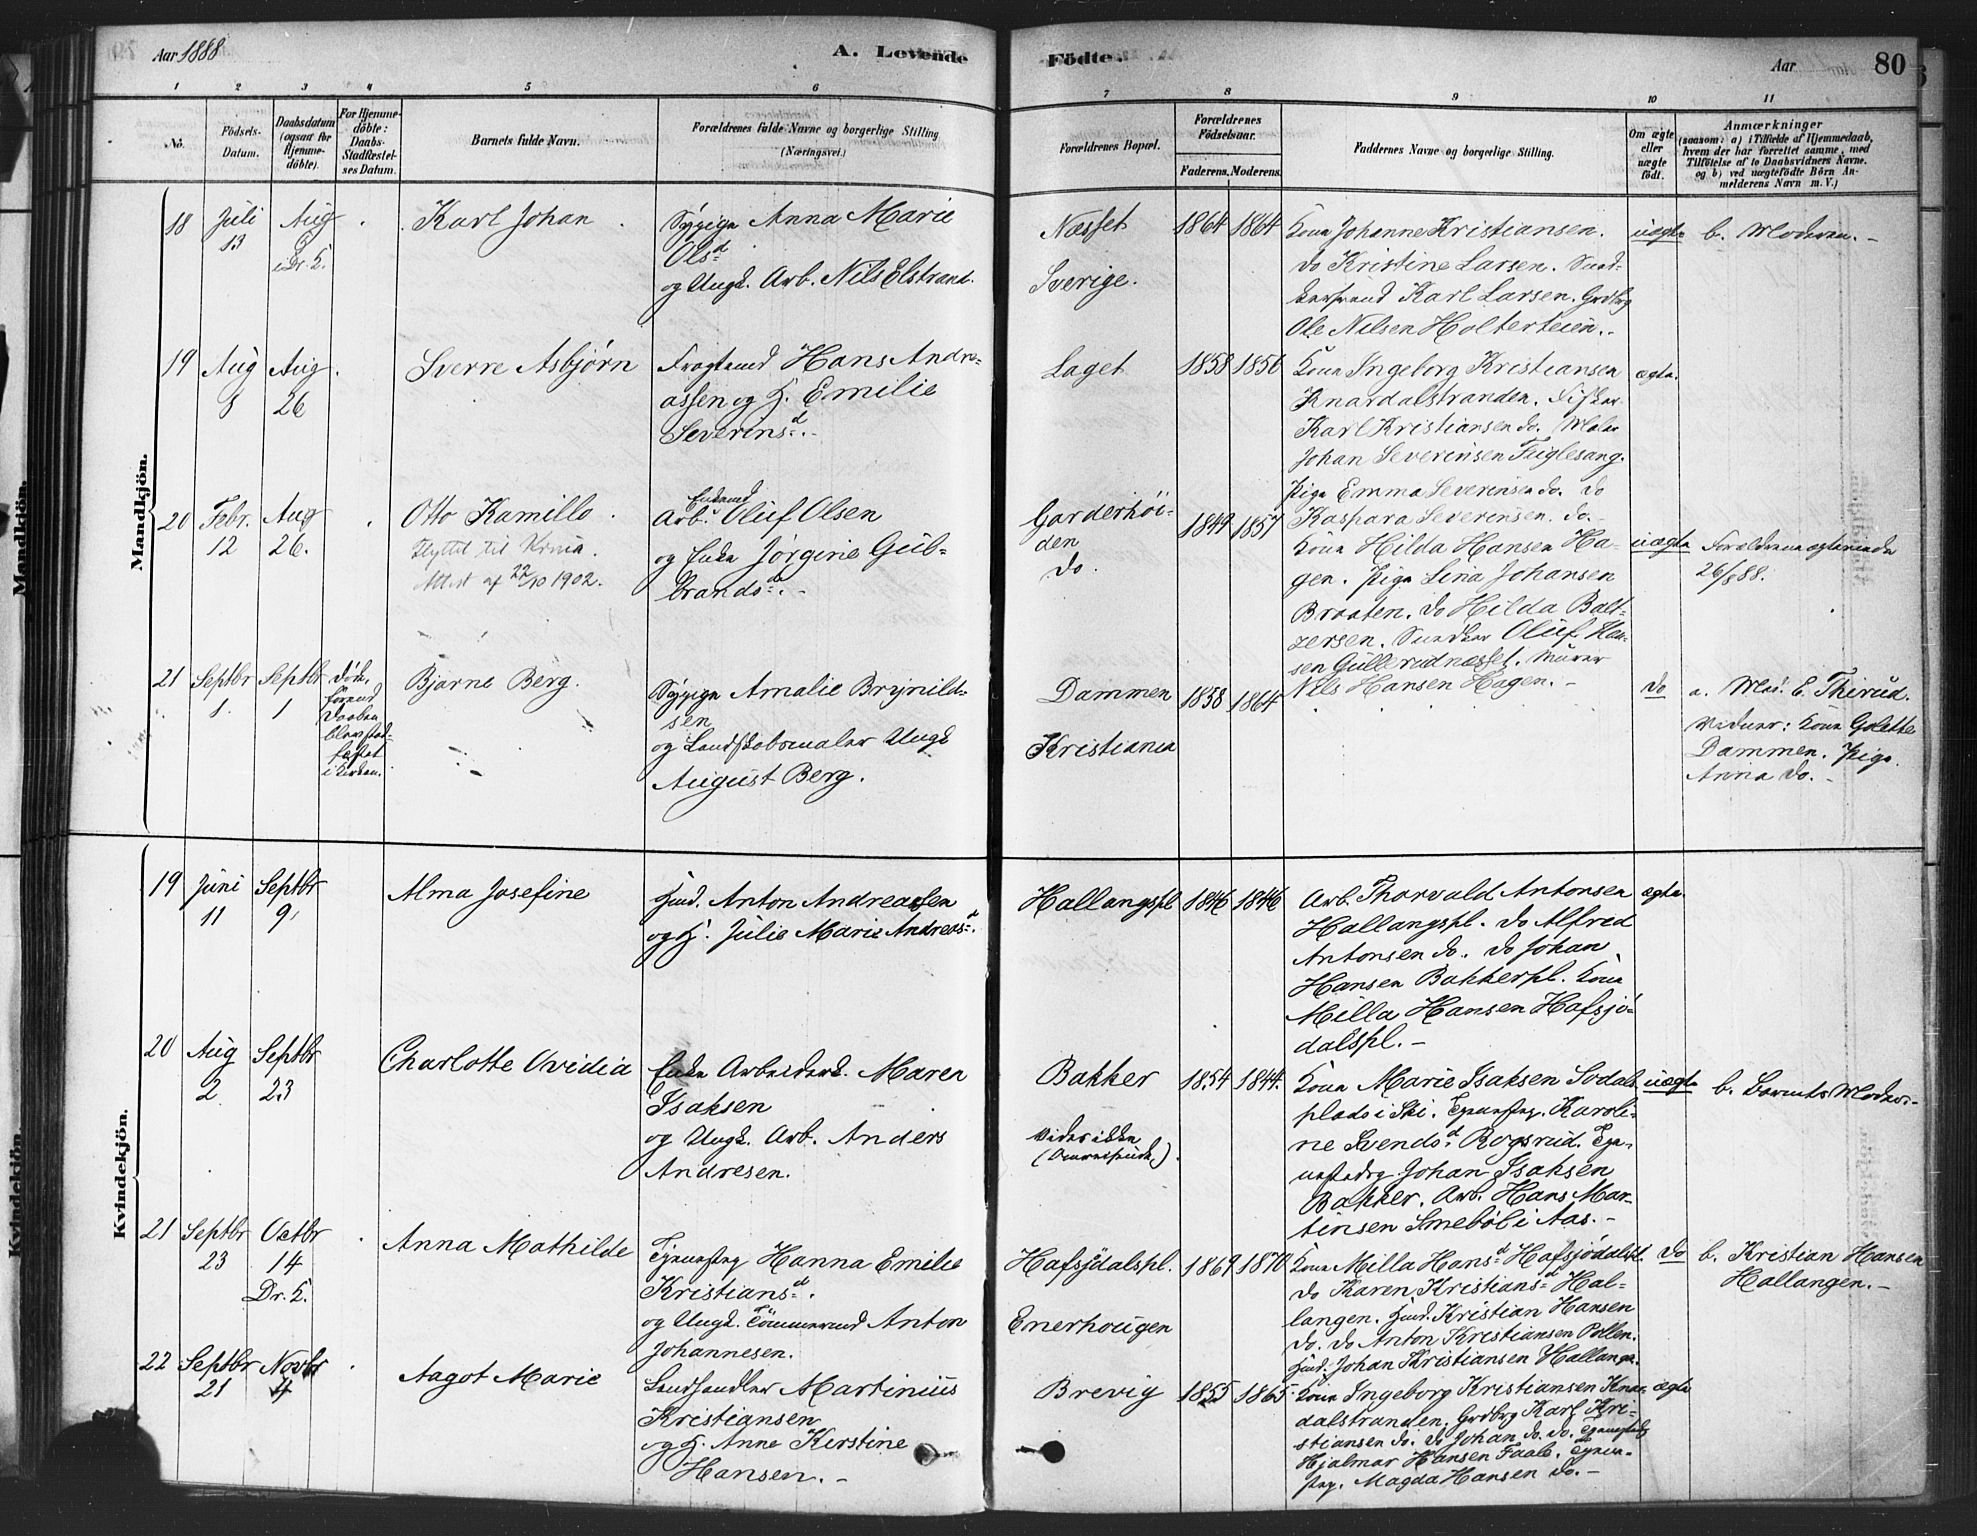 Aar 1888
A. Levende
Födte.
Aar
80
1 2 3 4 5 6 7 8 9 10 11
No.
Födsels-
Datum.
Daabsdatum
(ogsaa for
Hjemme-
döbte).
For Hjemme-
döbte:
Daabs-
Stadfæstel-
ses Datum.
Barnets fulde Navn.
Forældrenes fulde Navne og borgerlige Stilling
(Næringsvei.)
Forældrenes Bopæl.
Forældrenes
Födselsaar.
Faderens. Moderens.
Faddernes Navne og borgerlige Stilling.
Om ægte
eller
uægte
födt.
Anmærkninger
(saasom: a) i Tilfælde af Hjemmedaab,
hvem der har forrettet samme, med
Tilföielse af to Daabsvidners Navne.
og b) ved uægtefödte Börn An-
melderens Navn m. V.)
Mandkjön.
18
Juli
13
Aug
i Dr. K.
Karl Johan
Sypige Anna Marie
Olsd
og Ungk. Arb. Nils Elstrand.
Næsset
Sverige.
1864 1864
Kone Johanne Kristiansen.
do Kristine Larsen.
Karl Larsen. Grdbrg
Ole Nilsen Holterteien.
uægte
b. Moderen.
19
Aug
8
Aug
26
Sverre Asbjørn
Fragtemd Hans Andre-
assen og H. Emilie
Severinsd.
Laget
1858 1856
Kone Ingeborg Kristiansen
Knardalstranden. Fisker
Karl Kristiansen do. Maler
Johan Severinsen Fuglesang.
Pige Emma Severinsen do. do
Kaspara Severinsen. do.
ægte.
20
Febr.
12
Aug
26.
Otto Kamillo
Flyttet til Krnia.
Attest af 22/10 1902.
Enkemd
Arb. Oluf Olsen
og Enke Jørgine Gul-
brandsd.
Garderhøi-
den
do.
1849 1857
Kone Hilda Hansen Ha-
gen. Pige Lina Johansen
Braaten. do Hilda Balt-
zersen. Snedker Oluf Han-
sen Gullerudnæsset. Murer
Nils Hansen Hagen.
uægte
Forældrene ægteviede
26/8 88.
21
Septbr
1.
Septbr
1
Døde
førend
Daaben
blev stad-
fæstet
i Kirken.
Bjarne Berg.
Sypige Amalie Brynild-
sen
og Landskabsmaler Ungk
August Berg.
Dammen
Kristiania
1858 1864
do
a. Mad. E. Thirud.
Vidner: Kone Golette
Dammen. Pige
Anna do.
Kvindekjön.
19
Juni
11
Septbr
9
Alma Josefine
Hmd. Anton Andreassen
og H. Julie Marie Andreasd.
Hallangspl
1846 1846
Arb. Thorvald Antonsen
Hallangspl. do Alfred
Antonsen do. do Johan
Hansen Bakkerpl. Kone
Milla Hansen Hafsjö-
dalspl.
ægte.
20
Aug
2
Septbr
23
Charlotte Ovidia
Enke Arbeidersk. Maren
Isaksen
og Ungk. Arb. Anders
Andresen.
Bakker
Vides ikke
1854 1844.
Kone Marie Isaksen Sodals-
plads i Ski. Tjenestpg. Karoli-
ne Svendsd Rogsrud. Tje-
nestedrg Johan Isaksen
Bakker. Arb. Hans Mar-
tinsen Smebøl i Aas.
uægte
b. Barnets Moder.
21
Septbr
23
Octbr
14
Dr. K.
Anna Mathilde
Tjenestpg Hanna Emilie
Kristiansd.
og Ungk. Tömmermd Anton
Johannesen.
Hafsjdalspl.
Enerhougen
1869 1870
Kone Milla Hansd Hafsjødalspl.
do Karen Kristiansd Hal-
langen. Hmd. Kristian Hansen
do. do Anton Kristiansen Pollen.
Hmd. Johan Kristiansen Hallangen.
do
b. Kristian Hansen
Hallangen.
22
Septbr
21
Novbr
4
Aagot Marie
Landhandler Martinius
Kristiansen
og H. Anne Kirstine
Hansen.
Brevig
1855 1865
Kone Ingeborg Kristiansen Knar-
dalstranden. Grdbrg Karl Kri-
stiansen do. do Johan do. do. Tjenestedrg
Hjalmar Hansen Faale. Tjene-
stpg. Magda Hansen do.
ægte